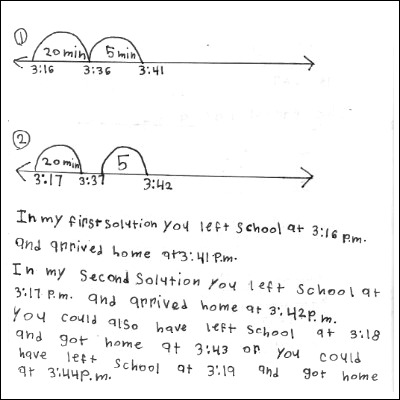 ①
20 min 5 min
3:16 3:36 3:41
②
20 min 5
3:17 3:37 3:42
In my first solution you left school at 3:16 p.m.
and arrived home at 3:41 P.m.
In my second solution you left school at
3:17 P.m. and arrived home at 3:42 p.m.
you could also have left school at 3:18
and got home at 3:43 or you could
have left school at 3:19 and got home
at 3:44 P.m.